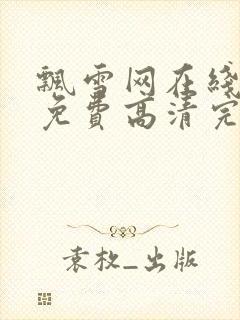 飘雪网在线
免费高清完
袁枚_出版